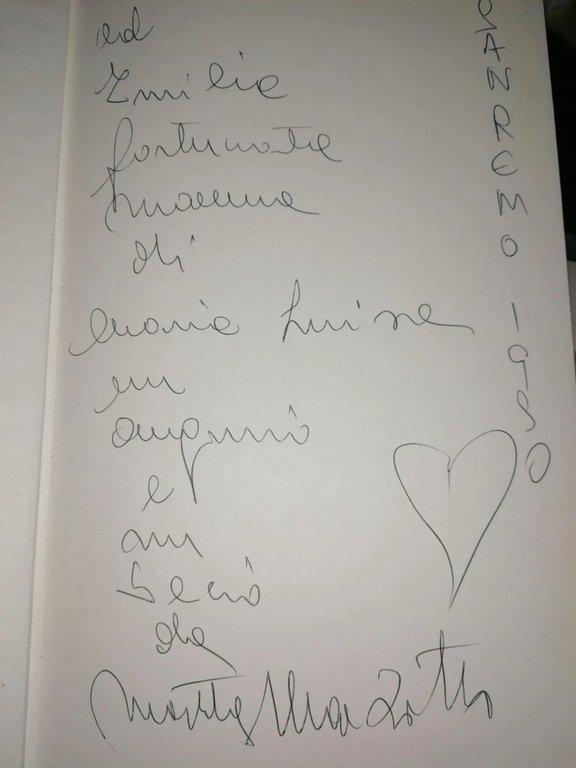 ad
Emilia
fortunata
mamma
di
Maria Luisa
un
augurio
e
un
bacio
da
Marta Marzotto
SANREMO 1980